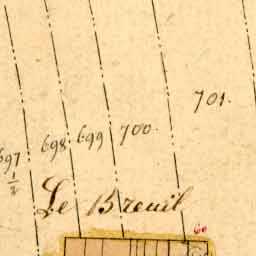 701.
700.
699
698.
697
1/2
Le Breuil
60